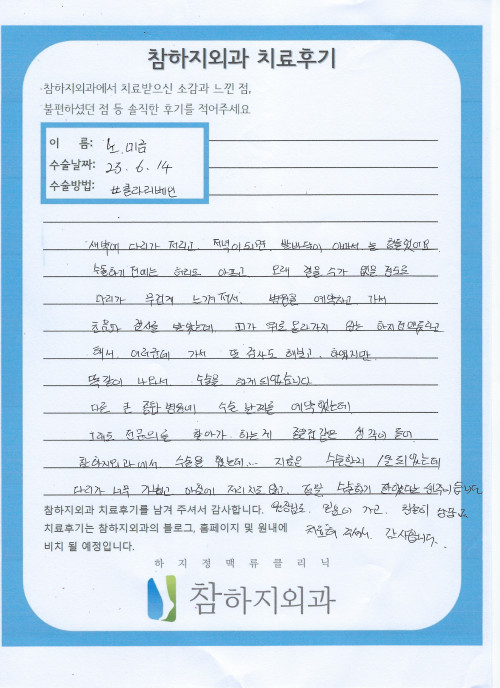 참하지외과 치료후기
참하지외과에서 치료받으신 소감과 느낀 점,
불편하셨던 점 등 솔직한 후기를 적어주세요
이 름: 노.미금
수술날짜: 23. 6. 14
수술방법: #클라리베인
새벽에 다리가 저리고. 저녁이 되면. 발바닥이 아파서 늘 힘들었어요.
수술하기 전에는 허리도 아프고. 오래 걸을 수가 없을 정도로
다리가 무겁게 느껴져서. 병원을 예약하고. 가서
초음파 검사를 받았는데. 피가 위로 올라가지 않는 하지정맥류라고
해서. 여러군데 가서 또 검사도 해보고. 하였지만.
똑같이 나와서. 수술을 하게 되었습니다.
다른 큰 종합병원에 수술 날짜를 예약했는데.
그래도 전문의를 찾아가 하는게 좋을것 같은 생각이 들어.
참하지외과에서 수술을 했는데... 지금은 수술한지 1달 되었는데
다리가 너무 가볍고 아침에 저리지도 않고. 정말 수술하기 잘했다는 생각이 듭니다.
참하지외과 치료후기를 남겨 주셔서 감사합니다. 원장님도. 믿음이 가고. 친절히 상담하고
치료후기는 참하지외과의 블로그, 홈페이지 및 원내에 치료해 주셔서. 감사합니다.
비치 될 예정입니다.
하지정맥류클리닉
참하지외과